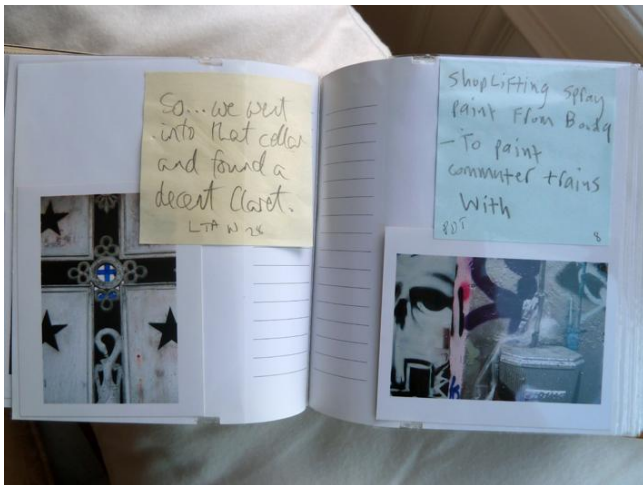 So... we went
into that cellar
and found a
decent Claret.
LTA N 28
ShopLifting Spray
paint From BandQ
- To paint
commuter trains
With
PDT
8